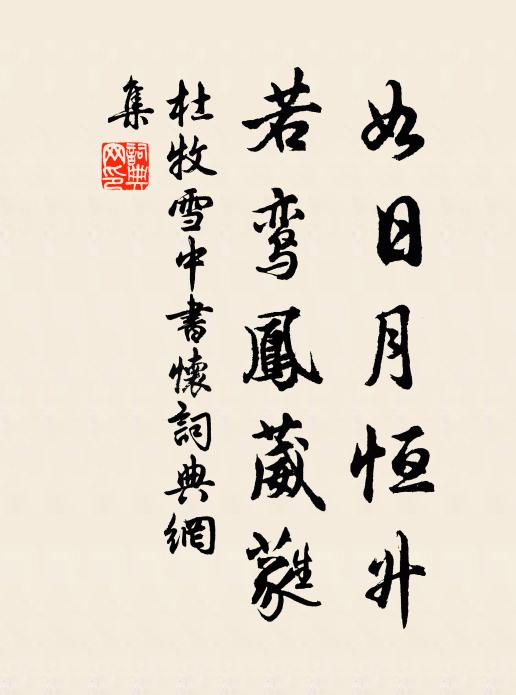 如日月恒升
若鸾鳳葳蕤
杜牧雪中書懷詞典網
集
詞典網印